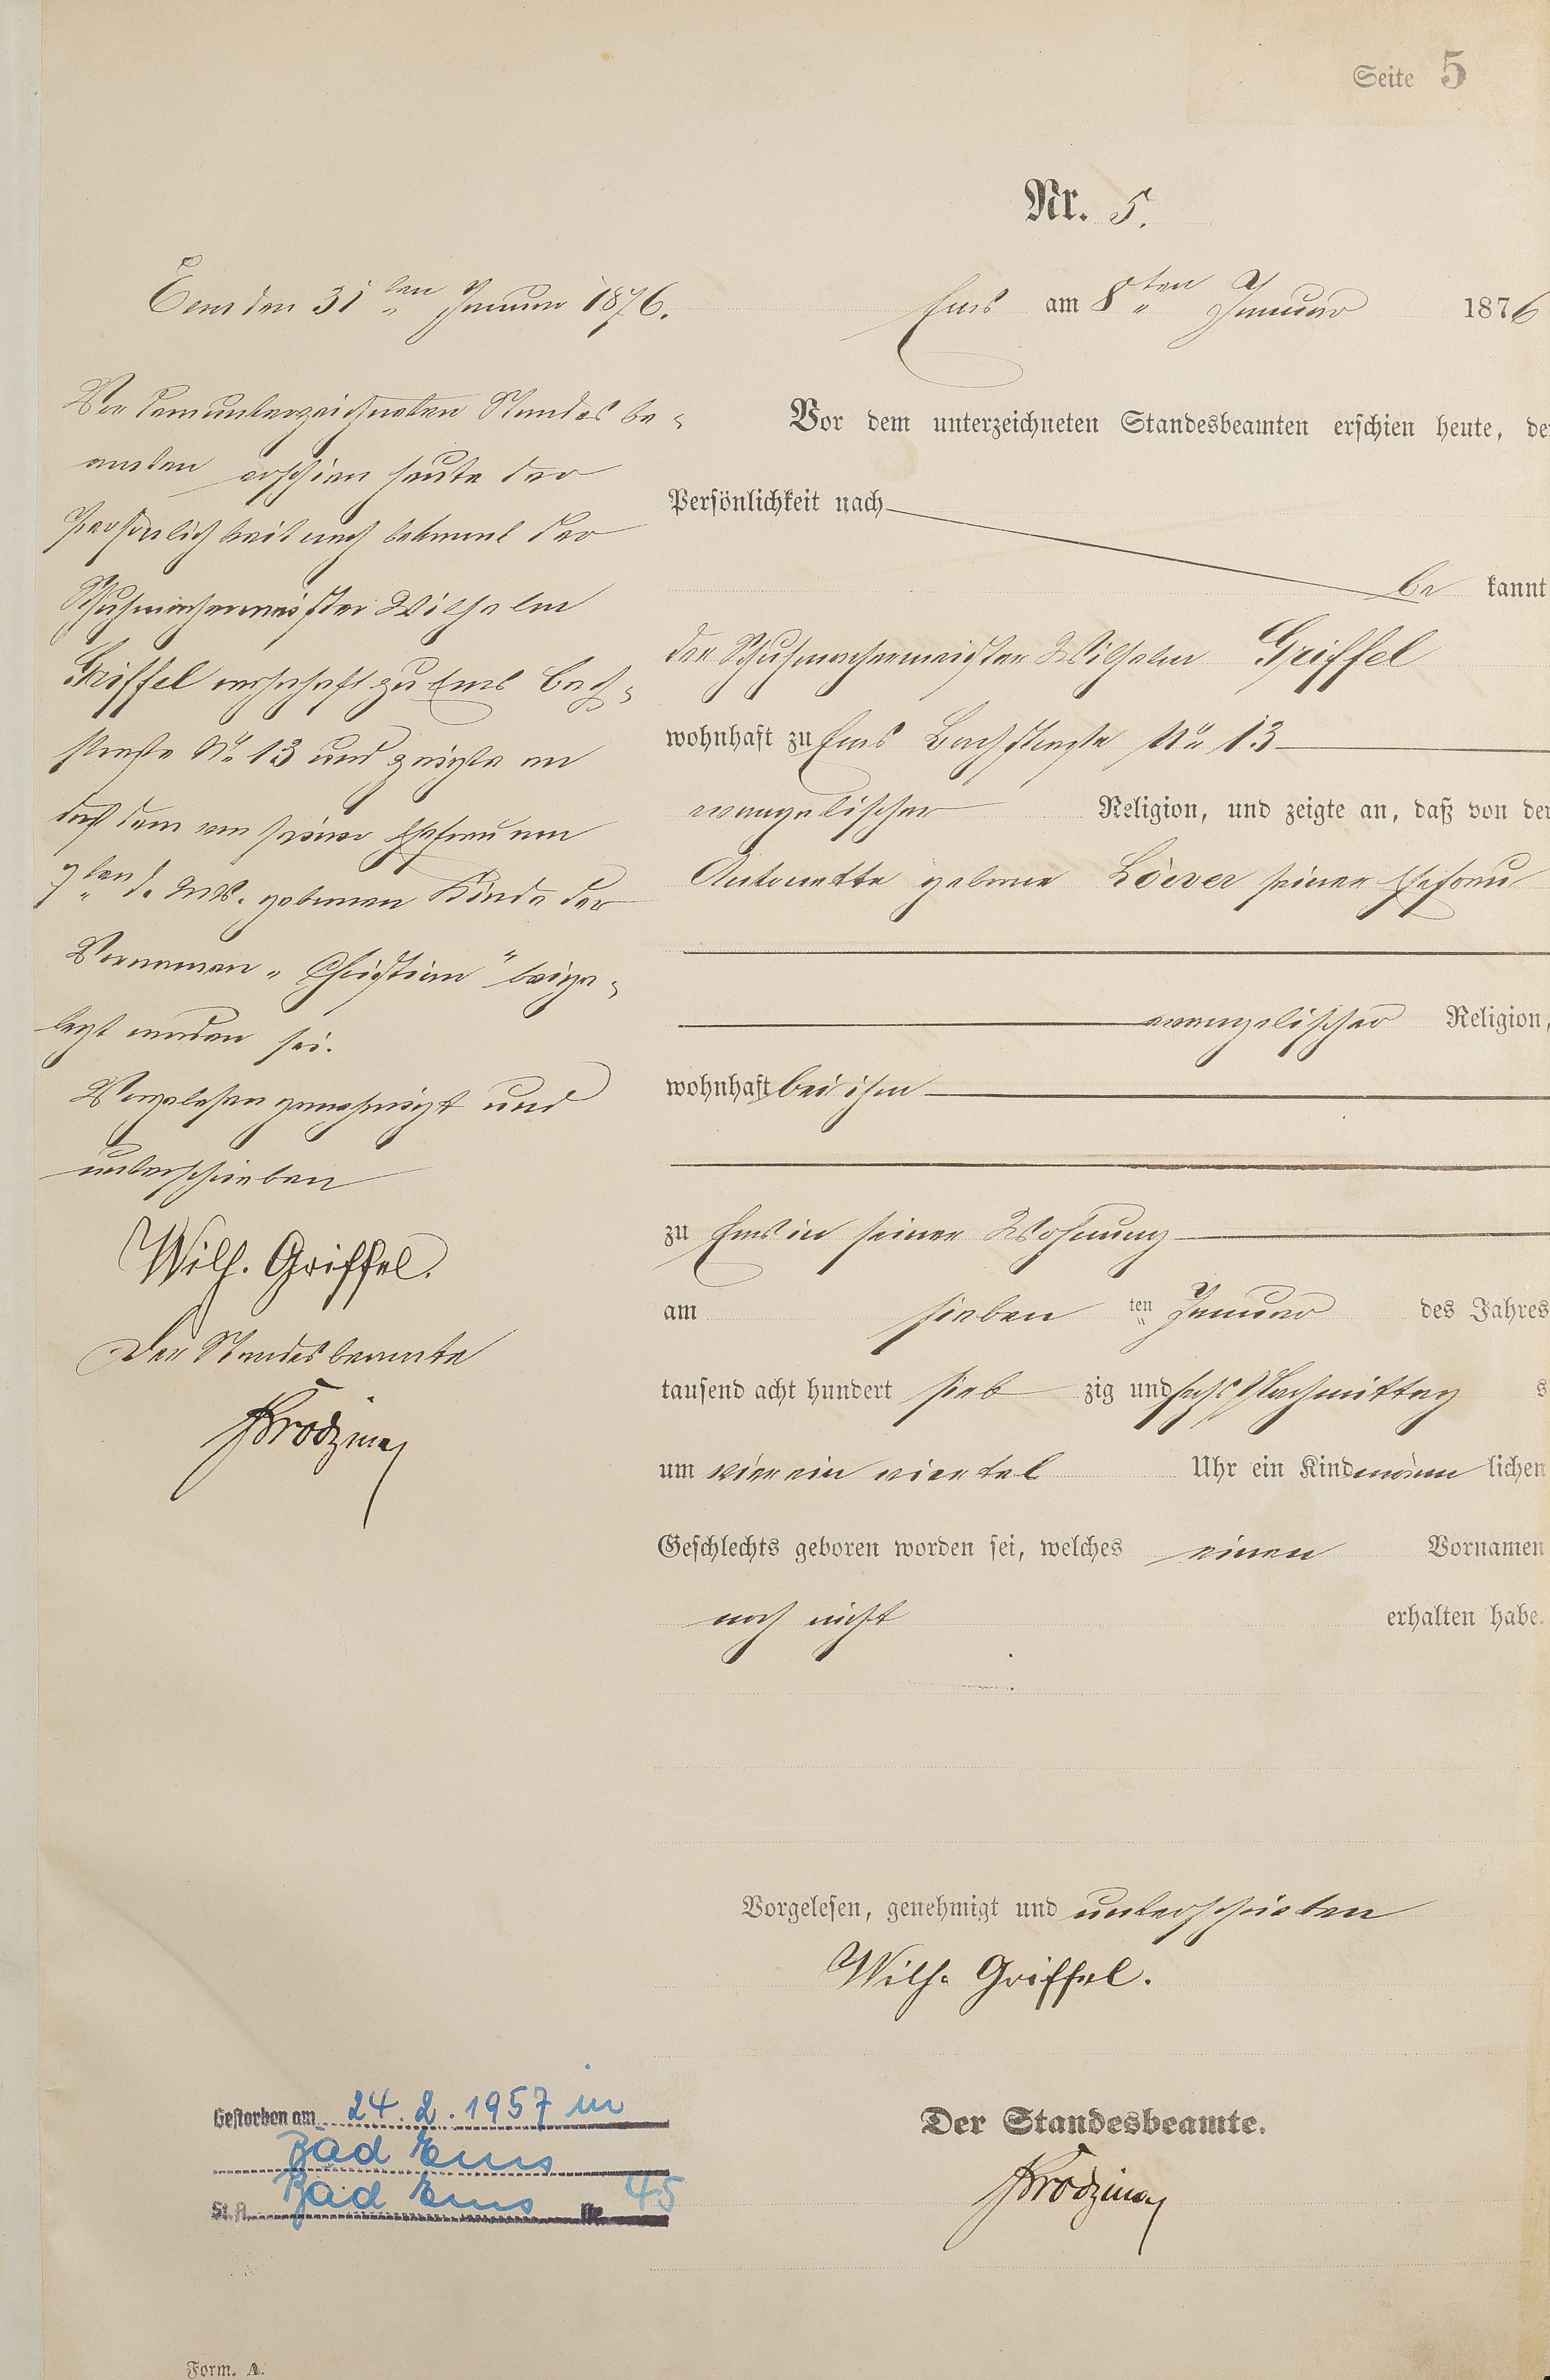 Seite 5
Nr. 5.
Ems am 8ten Januar 1876
Vor dem unterzeichneten Standesbeamten erschien heute, der
Persönlichkeit nach
be kannt
der Schuhmachermeister Wilhelm Griffel
wohnhaft zu Ems Bachstraße No 13
evangelischer Religion, und zeigte an, daß von der
Antonette geborne Löwer seiner Ehefrau
evangelischer Religion,
wohnhaft bei ihm
zu Ems in seiner Wohnung
am sieben ten Januar des Jahres
tausend acht hundert sieb zig und sechs Nachmittag s
um vier ein viertel Uhr ein Kind männ lichen
Geschlechts geboren worden sei, welches einen Vornamen
noch nicht erhalten habe.
Vorgelesen, genehmigt und unterschrieben
Wilh. Griffel.
Der Standesbeamte.
Ems den 31ten Januar 1876.
Vor dem unterzeichneten Standes be-
amten erschien heute der
Persönlichkeit nach bekannt der
Schuhmachermeister Wilhelm
Griffel wohnhaft zu Ems Bach-
straße No 13 und zeigte an
daß dem von seiner Ehefrau am
7ten d. Mts. gebornen Kinde der
Vornamen "Christian" beige-
legt worden sei.
Vorgelesen genehmigt und
unterschrieben
Wilh. Griffel.
Der Standesbeamte
Gestorben am 24.2.1957 in
Bad Ems
St. A. Bad Ems Nr. 45
Form. A.